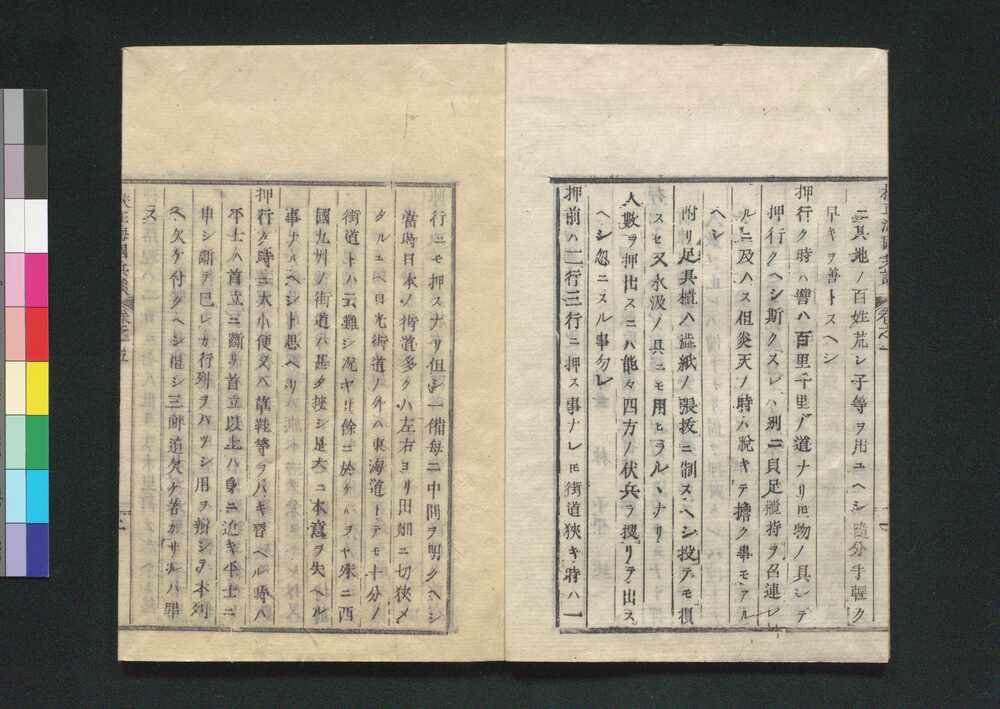 ニ其地ノ百姓荒レ子等ヲ用ユヘシ隨分手輕ク
早キヲ善トスヘシ
押行ク時ハ譬ハ百里千里ノ道ナリ𪜈物ノ具シテ
押行クヘシ斯クスレハ別ニ具足櫃持ヲ召連レ
ルニ及ハス但炎天ノ時ハ脱キテ擔ク事モアル
ヘシ
附リ足具櫃ハ澁紙ノ張拔ニ制スヘシ投テモ損
スセ又水汲ノ具ニモ用ヒラルヽナリ
人數ヲ押出スニハ能々四方ノ伏兵ヲ搜リテ出ス
ヘシ忽ニスル事勿レ
押前ハ二行三行ニ押ス事ナレ𪜈街道狹キ時ハ一
行ニモ押スナリ但シ一備毎ニ中間ヲ明クヘシ
當時日本ノ街道多クハ左右ヨリ田畑ニ切狹メ
タルユヘ日光街道ノ外ハ東海道トテモ十分ノ
街道トハ云難シ况ヤ其餘ニ於ケルヲヤ殊ニ西
國九州ノ街道ハ甚タ狹シ是大ニ本意ヲ失ヘル
事ナルヘシト思ヘリ
押行ク時ニ大小便又ハ草鞋等ヲハキ替ヘル時ハ
平士ハ首立ニ斷リ首立以上ハ身ニ近キ平士ニ
申シ斷テ己レカ行列ヲハツシ用ヲ辨シテ本列
ヘ欠ケ付クヘシ但シ三町迄欠ケ着カサルハ罪
ス